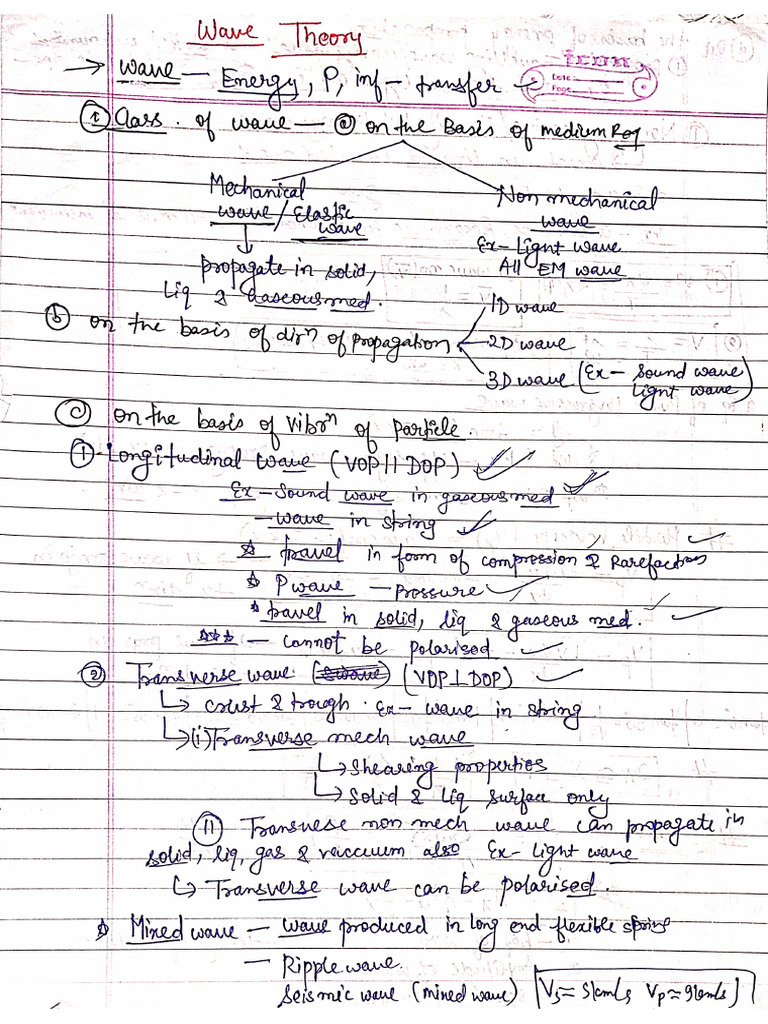 Wave Theory
→ Wave — Energy, P, inf – transfer
icon
Date
Page
① Class. of wave — ⓐ on the Basis of medium Req
Mechanical wave / Elastic wave
Non mechanical wave
Ex – Light wave
All EM wave
propagate in solid,
Liq & Gaseous med.
ⓑ on the basis of dirⁿ of propagation
1D wave
2D wave
3D wave (Ex – Sound wave
Light wave)
ⓒ on the basis of vibrⁿ of particle.
① Longitudinal wave (VOP || DOP)
Ex – Sound wave in gaseous med
– wave in string
☆ travel in form of compression & Rarefactions
☆ P wave — Pressure
* travel in solid, liq & gaseous med.
☆☆☆ — cannot be polarised
② Transverse wave (S wave) (VOP ⊥ DOP)
↳ crust & trough. Ex – wave in string
↳ (i) Transverse mech wave
↳ Shearing properties
↳ Solid & Liq surface only
(ii) Transvese non mech wave can propagate in
solid, liq, gas & vaccuum also Ex – Light wave
↳ Transverse wave can be polarised.
☆ Mixed wave — wave produced in long end flexible spring
— Ripple wave.
Seismic wave (mixed wave) Vs = 5km/s Vp ≈ 9km/s